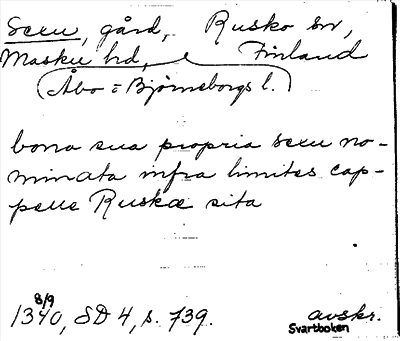 Sexu, gård, Rusko sn,
Masku hd, Finland
(Åbo = Björneborgs l.)
bona sua propria sexu no-
minata infra limites cap-
pelle Ruskæ sita
8/9
1340, SD 4, s. 739. avskr.
Svartboken